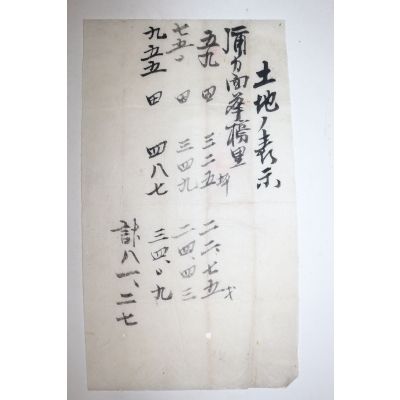 土地ノ表示
面 橋里
五九 田 三二五坪 二二、七五
七五〇 田 三四九 二四、四三
九五五 田 四八七 三四、〇九
計八一、二七